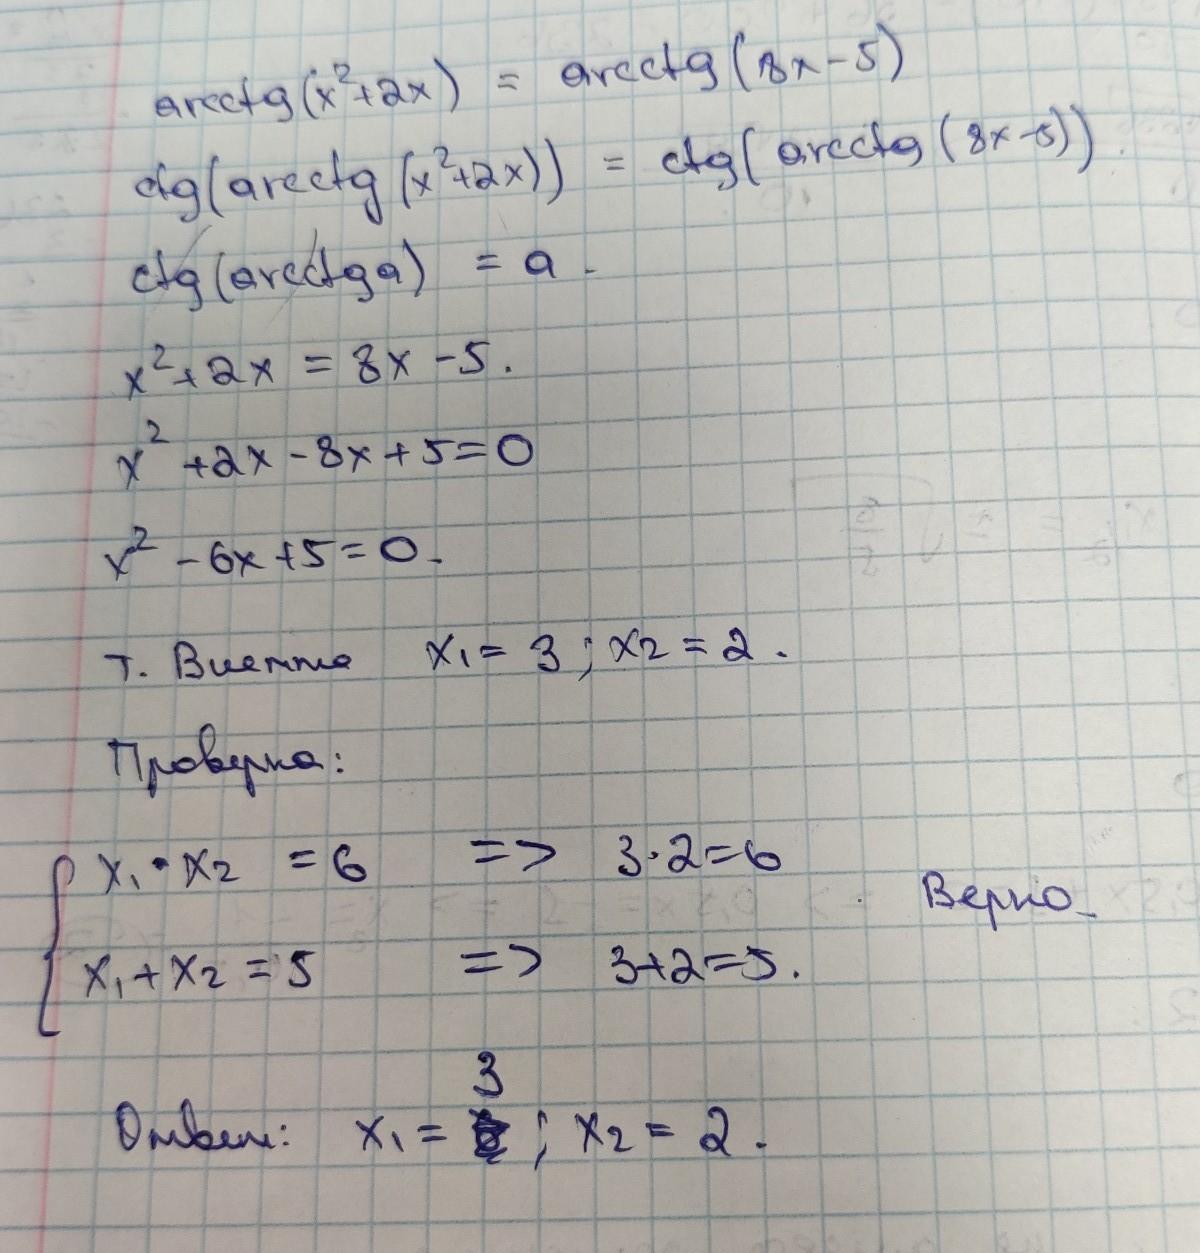 arcctg(x²+2x) = arcctg(8x-5)
ctg(arcctg(x²+2x)) = ctg(arcctg(8x-5)).
ctg(arcctg a) = a.
x²+2x = 8x-5.
x²+2x-8x+5=0
x²-6x+5=0.
т. Виетта x₁=3; x₂=2.
Проверка:
x₁·x₂ =6 => 3·2=6
Верно.
x₁+x₂=5 => 3+2=5.
Ответ: x₁=3; x₂=2.